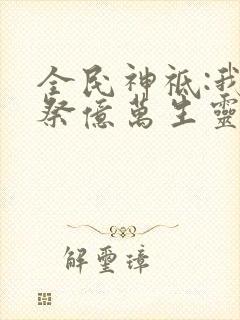 全民神祇:我
祭億萬生靈
解璽璋